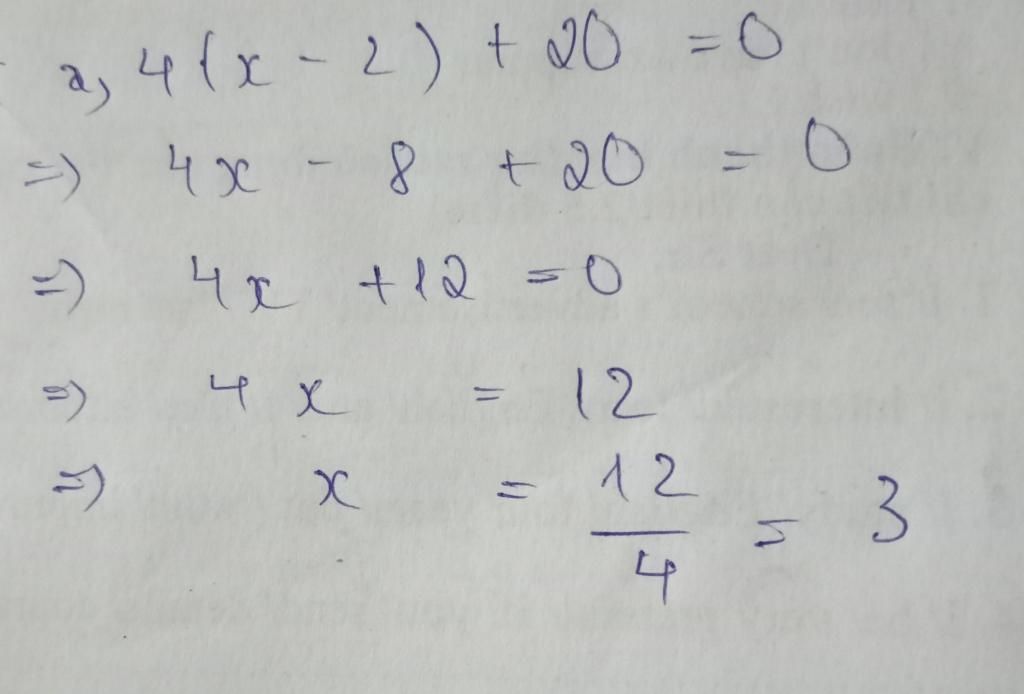 a, 4(x - 2) + 20 = 0
=> 4x - 8 + 20 = 0
=> 4x + 12 = 0
=> 4x = 12
=> x = 12/4 = 3